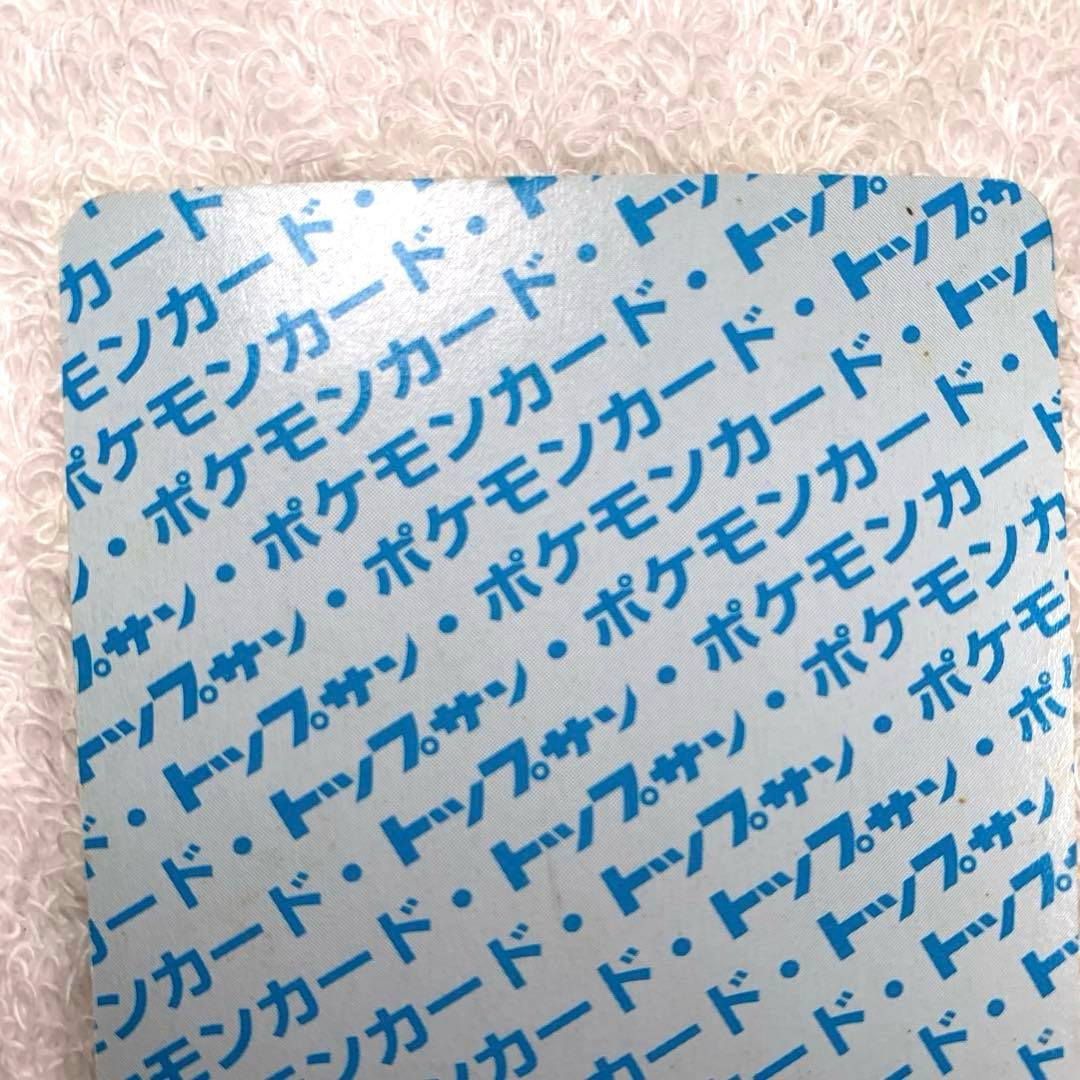 カード
モンカード・
ポケモンカード・
・ポケモンカード・トップ
トップサン・ポケモンカード・トップ
トップサン・ポケモンカード・トップサ
・トップサン・ポケモンカード・トップ
カード・トップサン・ポケモンカード・
ンカード・トップサン・ポケモンカード
モンカード・トップサン・ポケモンカ
ンカード・トップサン・ポケモ
カード・トップサン・ポ
カード・トップサン
ード・トップ
ド・ト